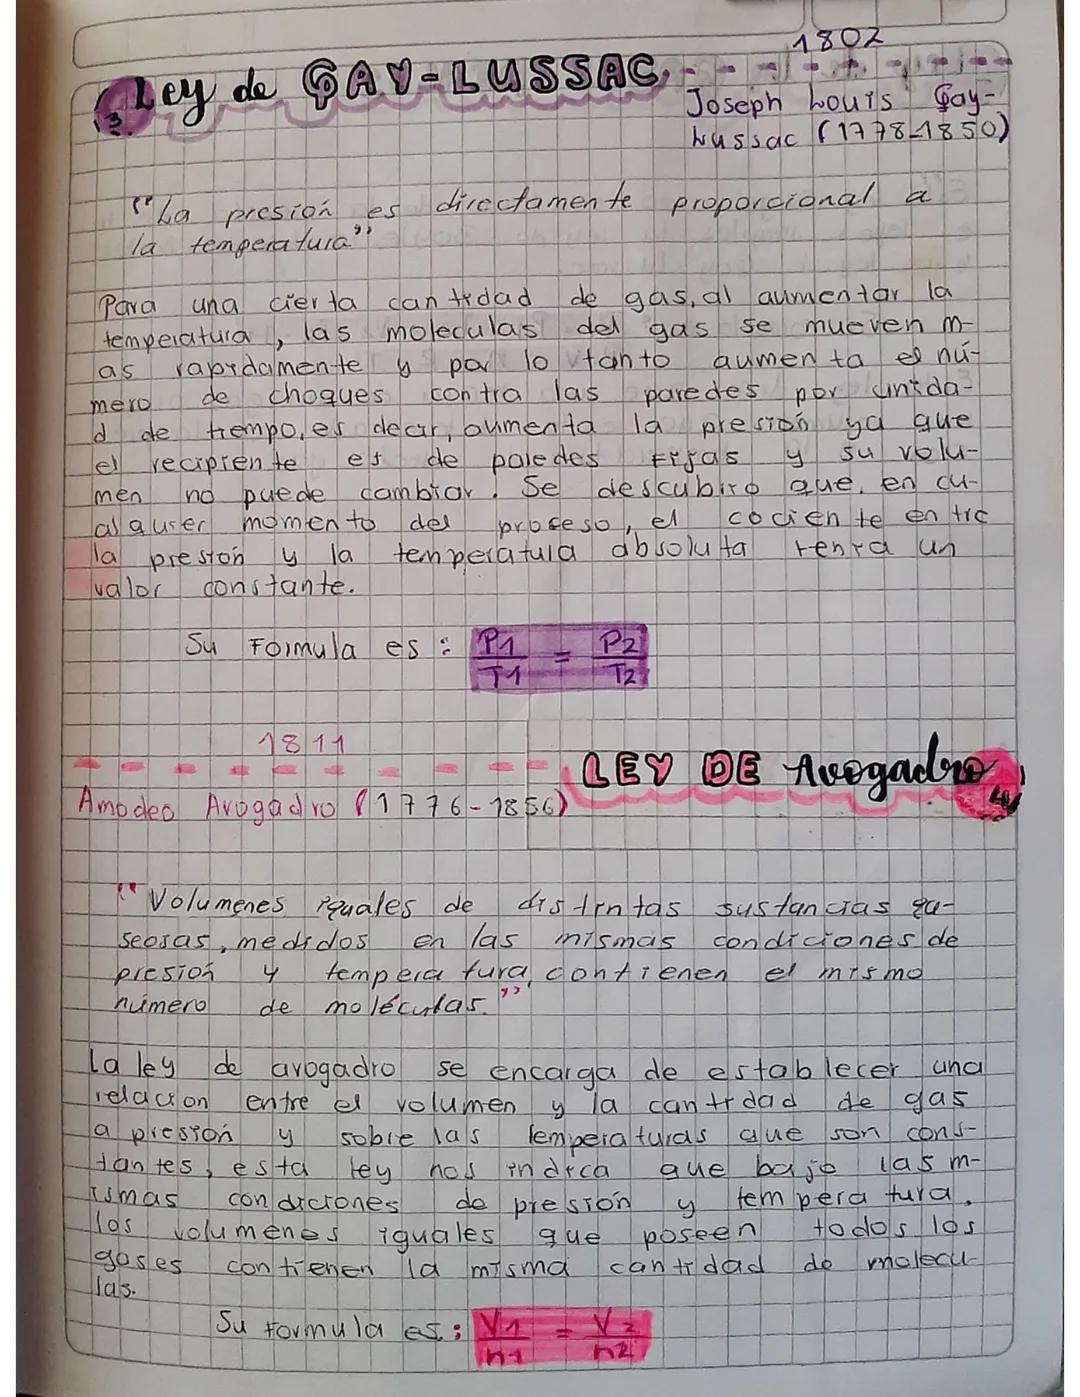 1802
3. Ley de GAY-LUSSAC
Joseph Louis Gay-
Lussac (1778-1850)
"La presión es directamente proporcional a
la temperatura"
Para una cierta cantidad de gas, al aumentar la
temperatura, las moleculas del gas se mueven m-
as rapidamente y por lo tanto aumenta el nú-
mero de choques contra las paredes por unida-
d de tiempo, es decir, aumenta la presión ya que
el recipiente es de paredes fijas y su volu-
men no puede cambiar. Se descubiro que, en cu-
alquier momento del proceso, el cociente entre
la presión y la temperatura absoluta tenia un
valor constante.
Su Formula es: P1/T1 = P2/T2
1811
LEY DE Avogadro
Amadeo Avogadro (1776-1856)
"Volumenes iguales de distintas sustancias ga-
seosas, medidos en las mismas condiciones de
presión y temperatura, contienen el mismo
número de moléculas."
La ley de avogadro se encarga de establecer una
relacion entre el volumen y la cantidad de gas
a presión y sobre las temperaturas que son cons-
tantes, esta ley nos indica que bajo las m-
ismas condiciones de presión y temperatura,
los volumenes iguales que poseen todos los
gases contienen la misma cantidad de molecu-
las.
Su formula es: V1/n1 = V2/n2